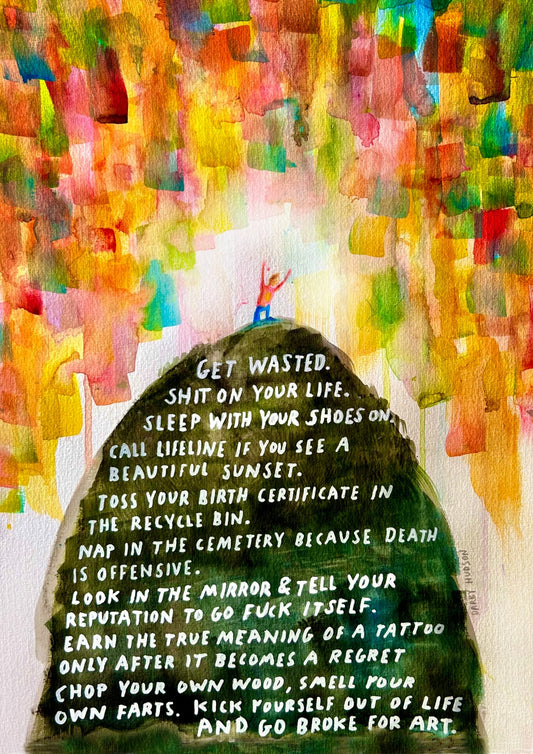 GET WASTED.
SHIT ON YOUR LIFE.
SLEEP WITH YOUR SHOES ON.
CALL LIFELINE IF YOU SEE A
BEAUTIFUL SUNSET.
TOSS YOUR BIRTH CERTIFICATE IN
THE RECYCLE BIN.
NAP IN THE CEMETERY BECAUSE DEATH
IS OFFENSIVE.
LOOK IN THE MIRROR & TELL YOUR
REPUTATION TO GO FUCK ITSELF.
EARN THE TRUE MEANING OF A TATTOO
ONLY AFTER IT BECOMES A REGRET
CHOP YOUR OWN WOOD, SMELL YOUR
OWN FARTS. KICK YOURSELF OUT OF LIFE
AND GO BROKE FOR ART.
DARBY HUDSON